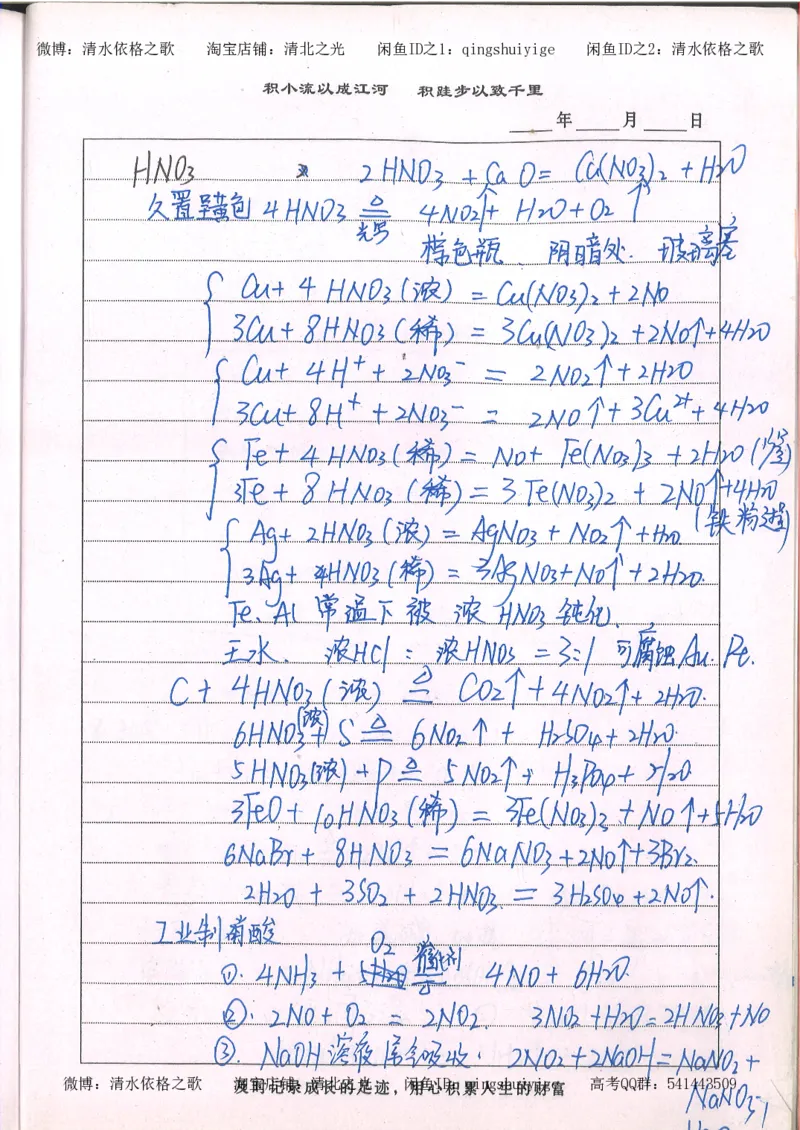 微博：清水依格之歌 淘宝店铺：清北之光 闲鱼ID之1：qingshuiyige 闲鱼ID之2：清水依格之歌
积小流以成江河 积跬步以致千里
年 月 日
HNO3 2HNO3 + CaO = Ca(NO3)2 + H2O
久置呈黄色 4HNO3 △ 光照 = 4NO2↑ + H2O + O2↑
棕色瓶、阴暗处. 玻璃塞
Cu + 4HNO3(浓) = Cu(NO3)2 + 2NO
3Cu + 8HNO3(稀) = 3Cu(NO3)2 + 2NO↑ + 4H2O
Cu + 4H+ + 2NO3- = 2NO2↑ + 2H2O
3Cu + 8H+ + 2NO3- = 2NO↑ + 3Cu2+ + 4H2O
Fe + 4HNO3(稀) = NO + Fe(NO3)3 + 2H2O
3Fe + 8HNO3(稀) = 3Fe(NO3)2 + 2NO↑ + 4H2O
(铁粉过)
Ag + 2HNO3(浓) = AgNO3 + NO2↑ + H2O
3Ag + 4HNO3(稀) = 3AgNO3 + NO↑ + 2H2O.
Fe、Al 常温下被浓HNO3 钝化、
王水、浓HCl : 浓HNO3 = 3:1 可腐蚀Au. Pt.
C + 4HNO3(浓) △= CO2↑ + 4NO2↑ + 2H2O.
6HNO3(浓) + S △= 6NO2↑ + H2SO4 + 2H2O.
5HNO3(浓) + P △= 5NO2↑ + H3PO4 + H2O
3FeO + 10HNO3(稀) = 3Fe(NO3)3 + NO↑ + 5H2O
6NaBr + 8HNO3 = 6NaNO3 + 2NO↑ + 3Br2.
2H2O + 3SO2 + 2HNO3 = 3H2SO4 + 2NO↑.
工业制硝酸
①. 4NH3 + 5O2 催化剂 △ = 4NO + 6H2O
②. 2NO + O2 = 2NO2. 3NO2 + H2O = 2HNO3 + NO
③. NaOH溶液尾气吸收. 2NO2 + 2NaOH = NaNO2 +
NaNO3 +
微博：清水依格之歌 淘宝店铺：清北之光 闲鱼ID：qingshuiyige 高考QQ群：541443509
及时记录成长的足迹，用心积累人生的财富
H2O